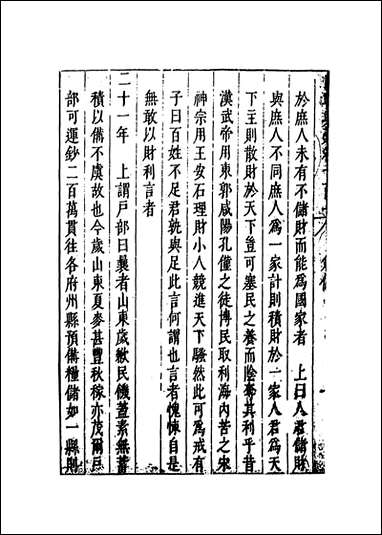 於庶人未有不儲財而能爲國家者　上曰人君儲財
與庶人不同庶人爲一家計則積財於一家人君爲天
下主則散財於天下豈可塞民之養而陰奪其利乎昔
漢武帝用東郭咸陽孔僅之徒剝民取利海內苦之宋
神宗用王安石理財小人競進天下騷然此可爲戒有
子曰百姓不足君孰與足此言何謂也言者愧悚自是
無敢以財利言者
二十一年　上謂戶部曰曩者山東歲歉民饑蓋素無蓄
積以備不虞故也今歲山東夏麥甚豐秋稼亦茂爾戶
部可運鈔二百萬貫往各府州縣預備糧儲如一縣則